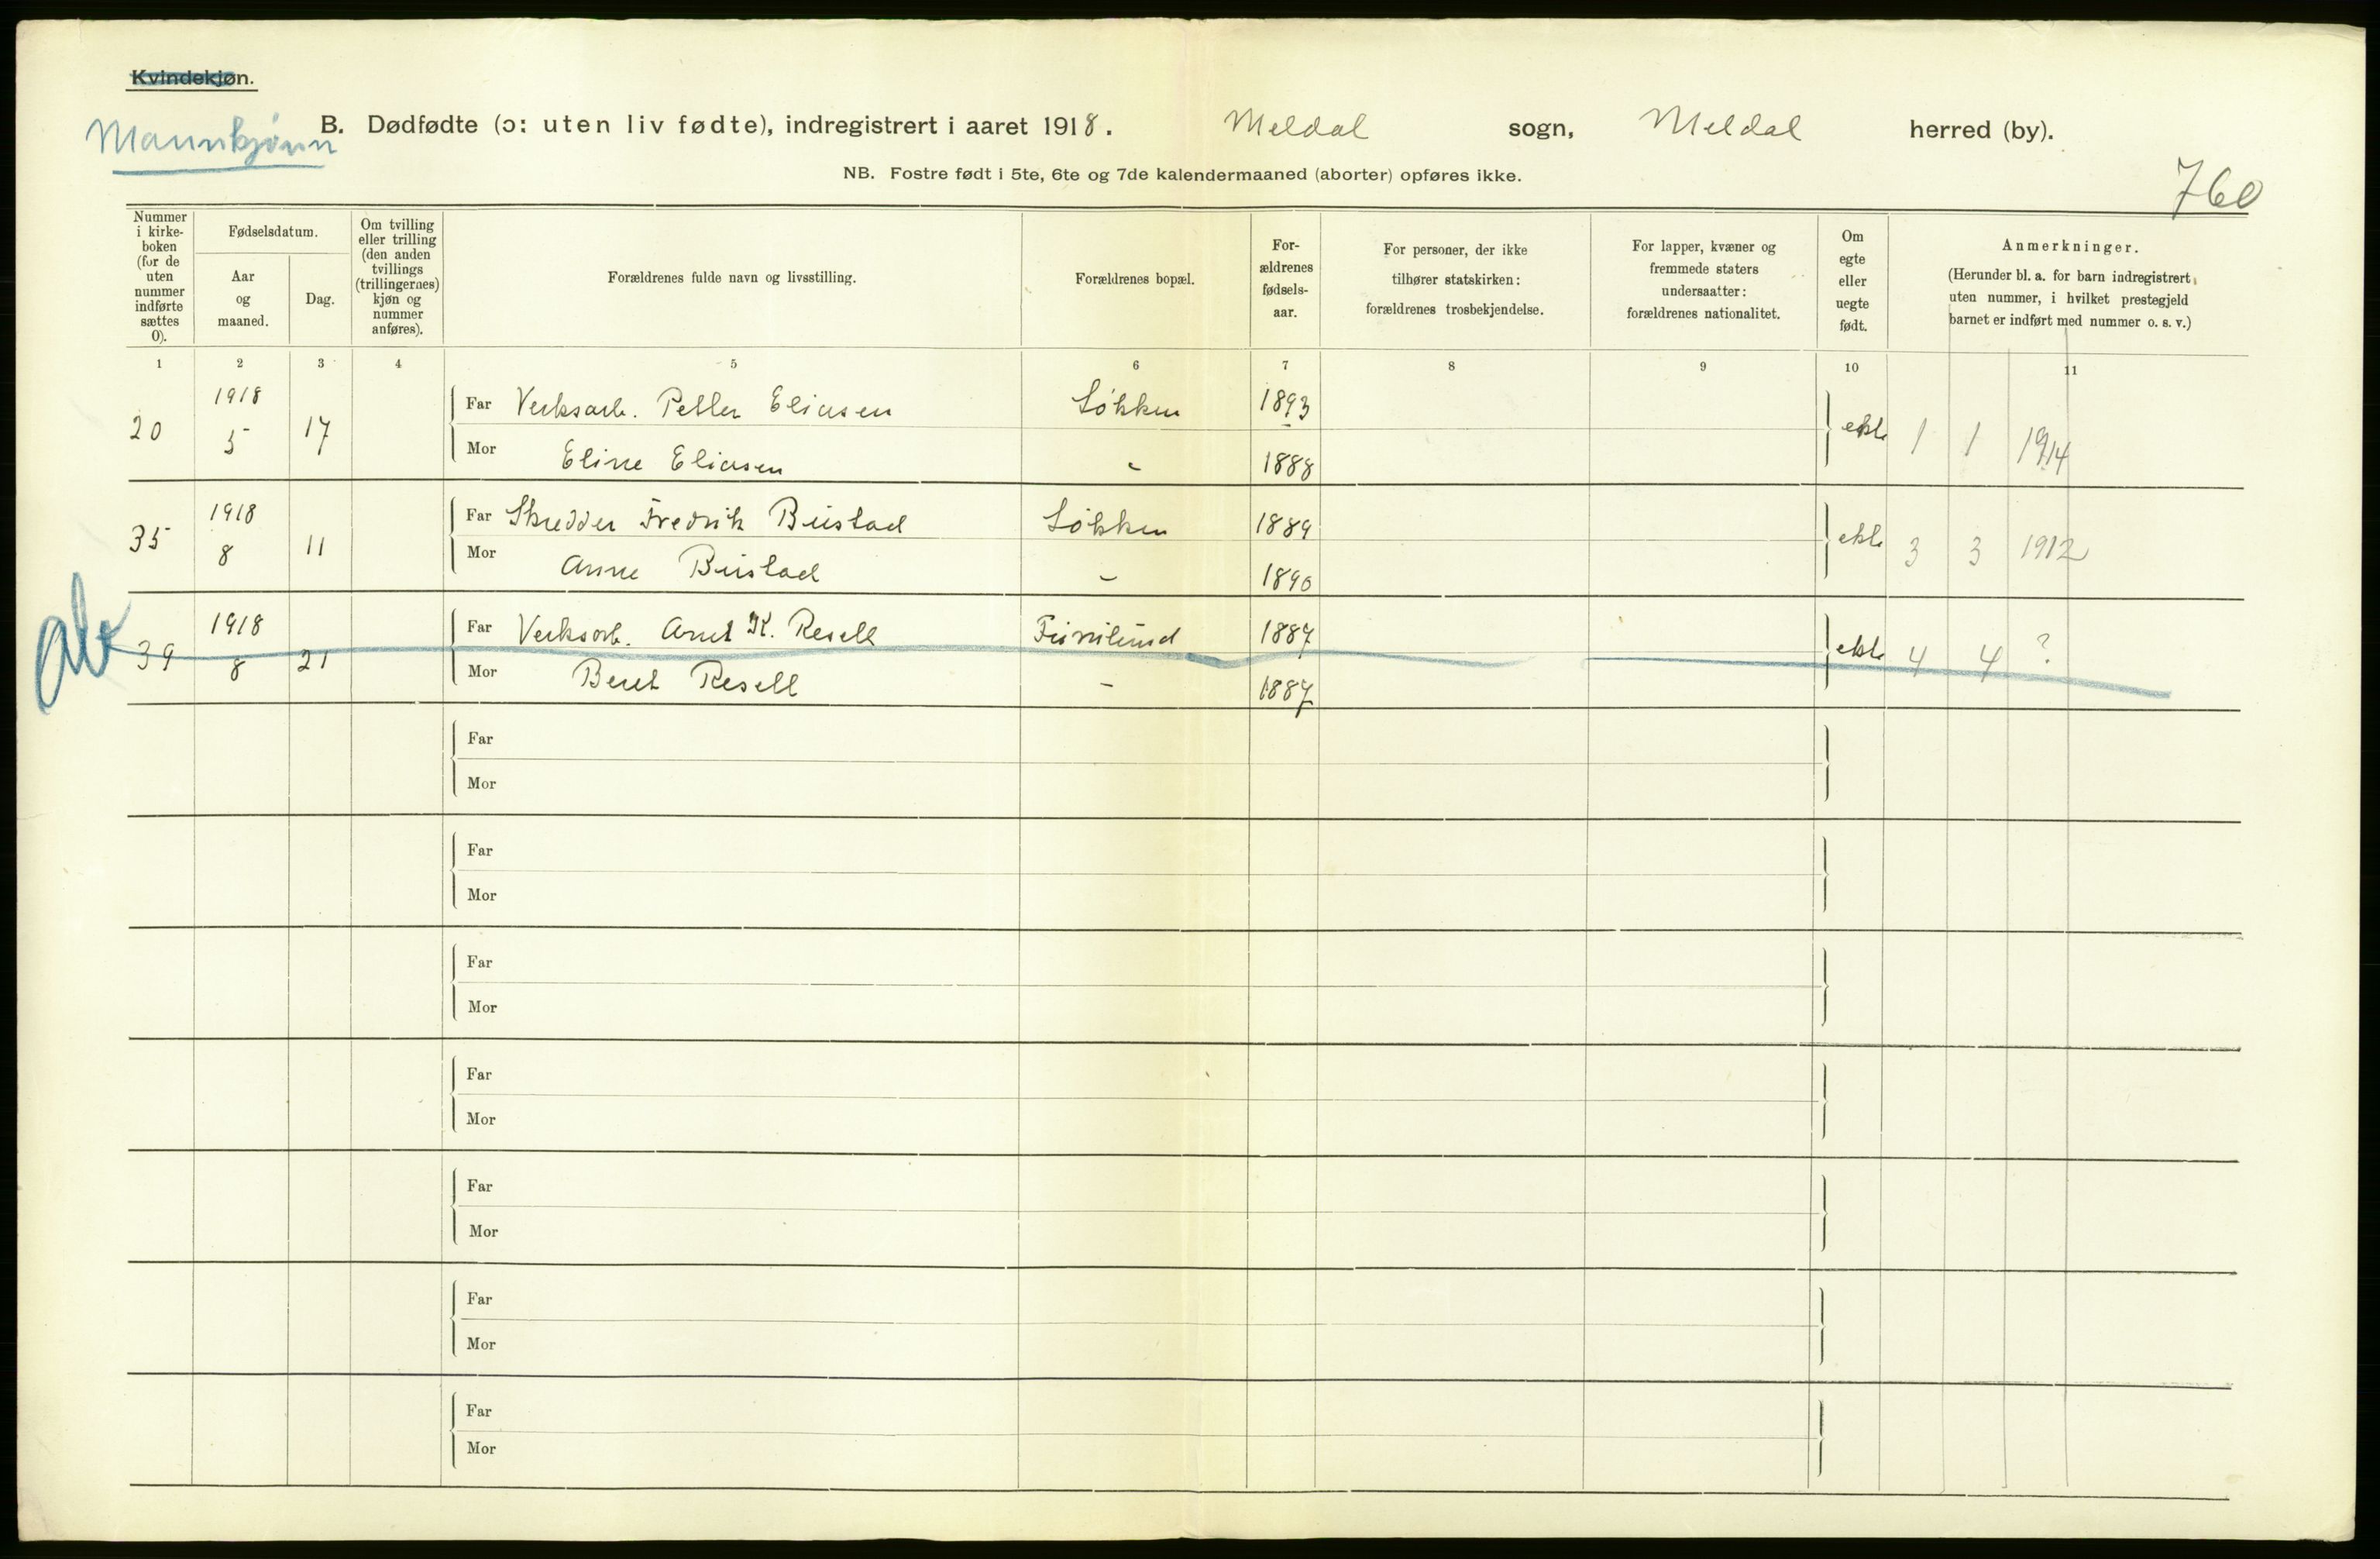 Kvindekjøn.
Mannkjønn
B. Dødfødte (ɔ: uten liv fødte), indregistrert i aaret 1918. Meldal sogn, Meldal herred (by).
NB. Fostre født i 5te, 6te og 7de kalendermaaned (aborter) opføres ikke.
760
Nummer i kirke-boken (for de uten nummer indførte sættes 0).
Fødselsdatum.
Aar og maaned.
Dag.
Om tvilling eller trilling (den anden tvillings (trillingernes) kjøn og nummer anføres).
Forældrenes fulde navn og livsstilling.
Forældrenes bopæl.
For-ældrenes fødsels-aar.
For personer, der ikke tilhører statskirken: forældrenes trosbekjendelse.
For lapper, kvæner og fremmede staters undersaatter: forældrenes nationalitet.
Om egte eller uegte født.
Anmerkninger.
(Herunder bl. a. for barn indregistrert uten nummer, i hvilket prestegjeld barnet er indført med nummer o. s. v.)
1 2 3 4 5 6 7 8 9 10 11
20 1918 5 17 Far Verksarb. Petter Eliasen Løkken 1893 ekte 1 1 1914
Mor Eline Eliasen - 1888
35 1918 8 11 Far Skredder Fredrik Bustad Løkken 1889 ekte 3 3 1912
Mor Anne Bustad - 1890
39 1918 8 21 Far Verksarb. Arnt K. Resell 1887 ekte 4 4 ?
Mor Beret Resell - 1887
Far
Mor
Far
Mor
Far
Mor
Far
Mor
Far
Mor
Far
Mor
Far
Mor